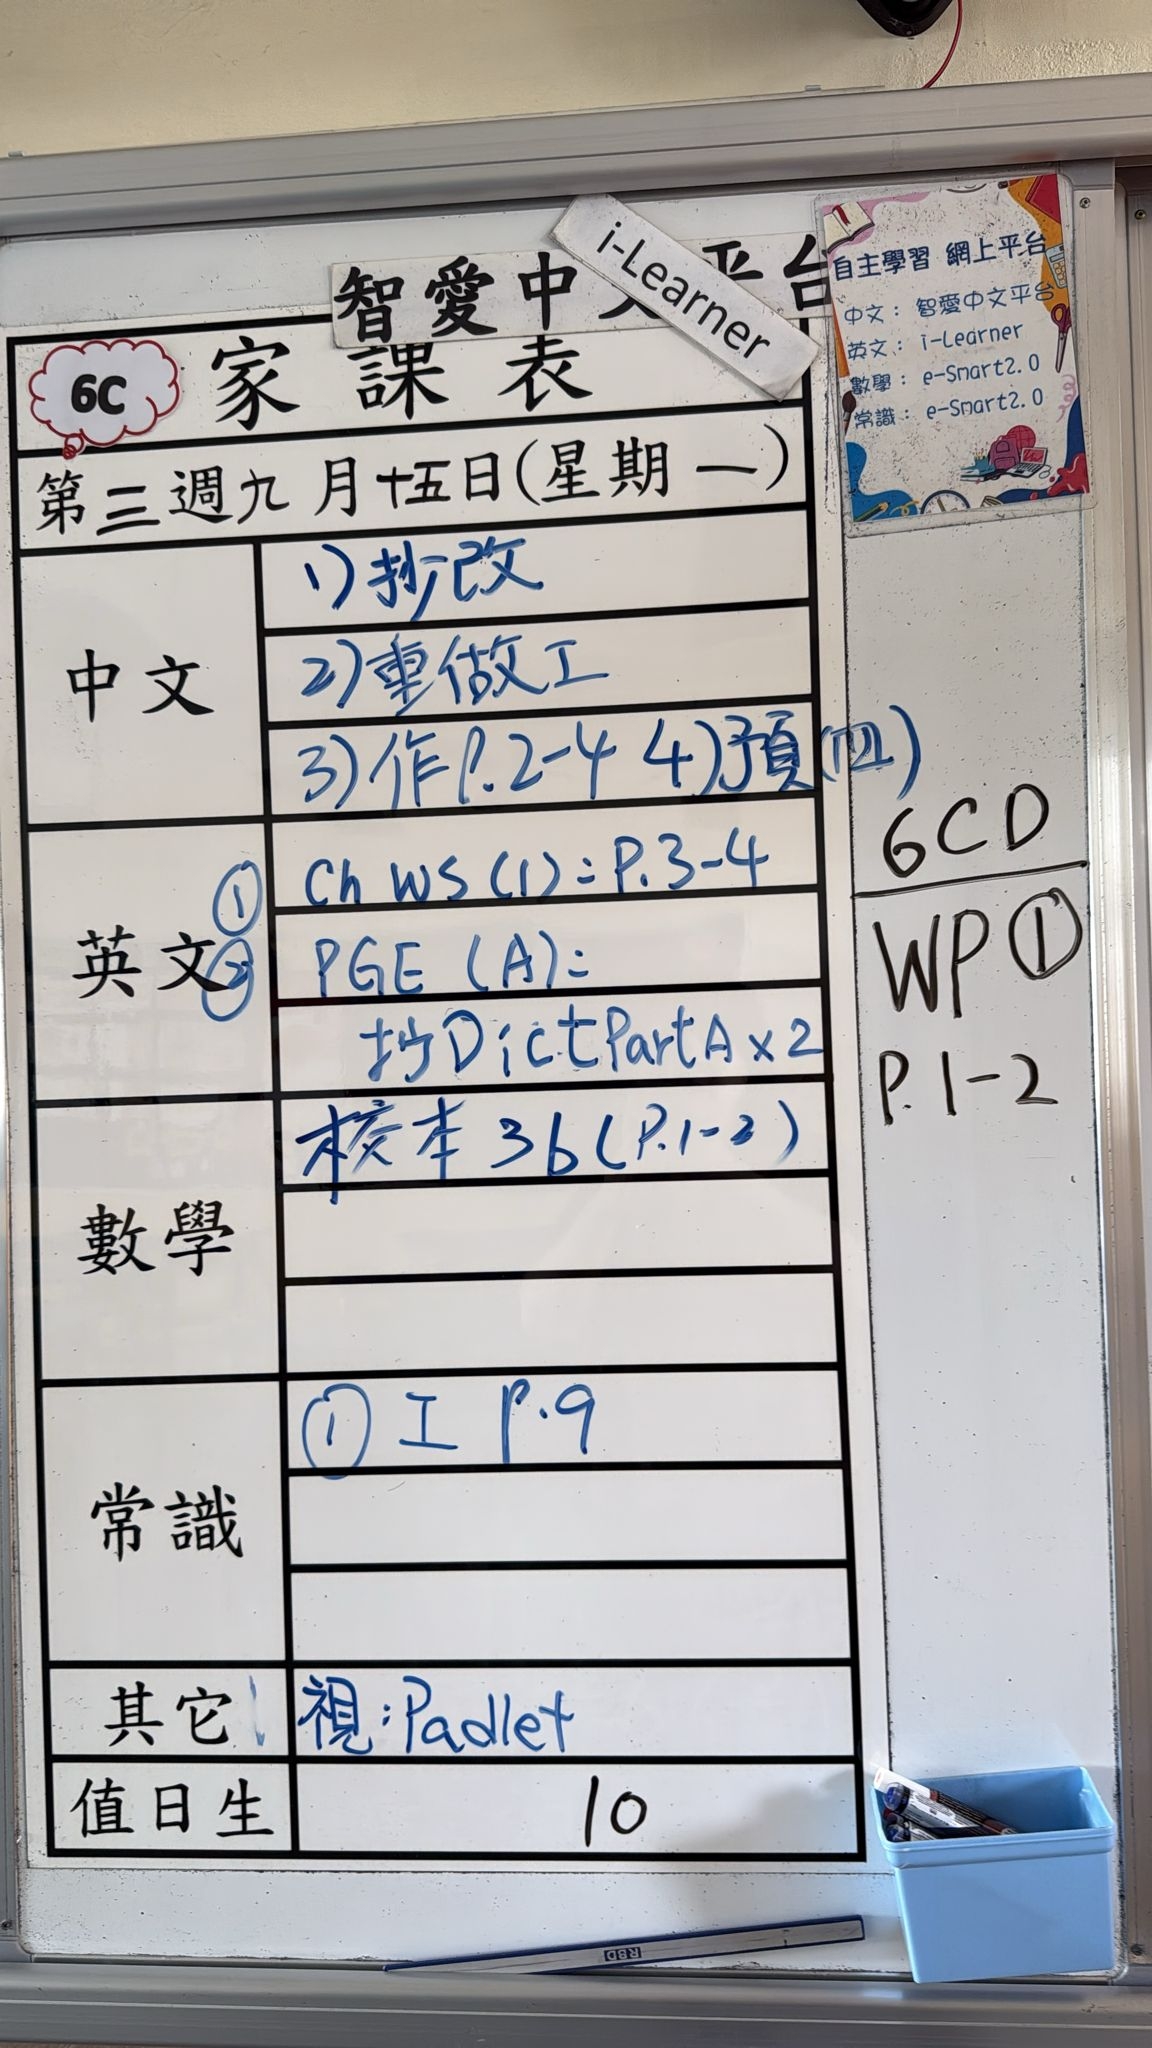 智愛中文平台
i-Learner
自主學習 網上平台
中文：智愛中文平台
英文：i-Learner
數學：e-Smart2.0
常識：e-Smart2.0
6C 家課表
第三週九月十五日(星期一)
中文
1)抄改
2)重做工
3)作P.2-4 4)預(四)
英文
① Ch WS (1): P.3-4
② PGE (A):
抄Dict Part A x 2
數學
校本 3b (P.1-2)
常識
① 工 P.9
其它
視:Padlet
值日生
10
6CD
WP ①
P.1-2
RBD